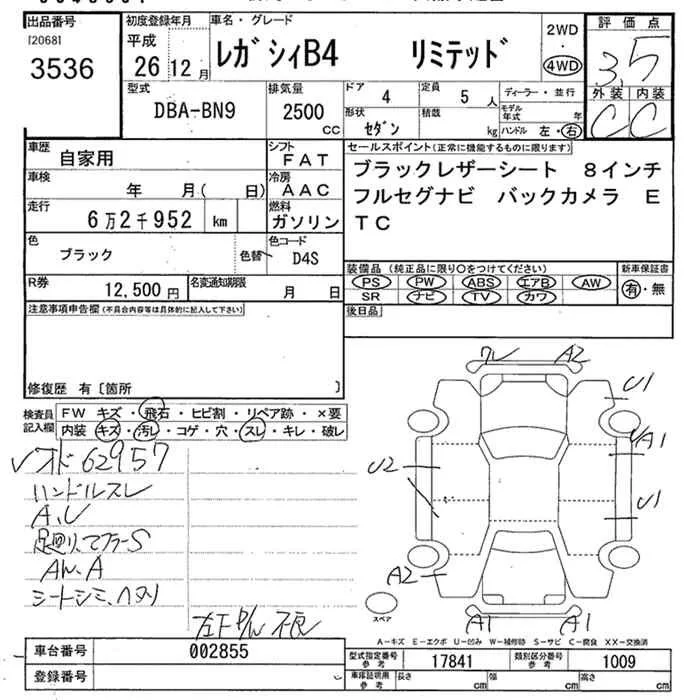 出品番号
[2068]
3536
初度登録年月
平成
26年12月
車名・グレード
レガシィB4 リミテッド
2WD
・
4WD
評価点
3.5
外装 内装
C C
型式
DBA-BN9
排気量
2500
CC
ドア
4
定員
5 人
形状
セダン
積載
kg
ディーラー・並行
モデル年式
年
ハンドル 左・右
車歴
自家用
シフト
FAT
車検
年 月( 日)
冷房
AAC
走行
6万2千952 km
燃料
ガソリン
色
ブラック
色替
色コード
D4S
R券
12,500 円
名変通知期限
月 日
セールスポイント(正常に機能するものに限ります)
ブラックレザーシート 8インチ
フルセグナビ バックカメラ E
TC
装備品 (純正品に限り○をつけてください)
PS PW ABS エアB AW
SR ナビ TV カワ
新車保証書
有・無
後日品
注意事項申告欄(不具合内容等は具体的に記入して下さい)
修復歴 有[箇所 ]
検査員
記入欄
FW キズ・飛石・ヒビ割・リペア跡・×要
内装 キズ・汚レ・コゲ・穴・スレ・キレ・破レ
メオド 62957
ハンドルスレ
A、U
足廻り、マフラーS
A
シートシミ、ヘタリ
ワレ
A2
U1
A1
U2
U1
A2
A1
A1
スペア
A-キズ E-エクボ U-凹み W-補修跡 S-サビ C-腐食 XX-交換済
車台番号
002855
登録番号
型式指定番号
参考
17841
類別区分番号
参考
1009
車庫証明用
参考
長さ cm
幅 cm
高さ cm